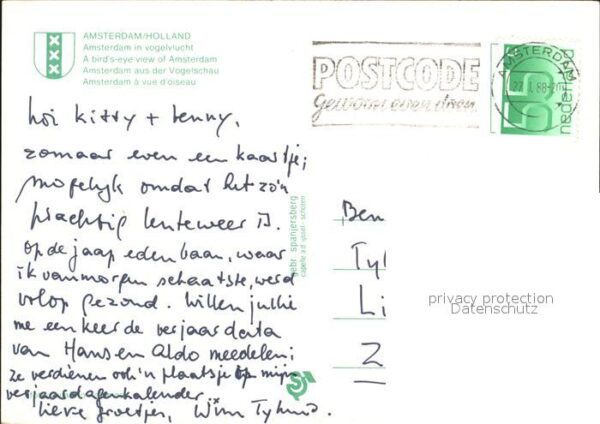 AMSTERDAM/HOLLAND
Amsterdam in vogelvlucht
A bird's-eye view of Amsterdam
Amsterdam aus der Vogelschau
Amsterdam à vue d'oiseau
POSTCODE
gewoon even doen
AMSTERDAM
55
nederland
hoi Kitty + Lenny,
zomaar even een kaartje;
mogelijk omdat het zo'n
prachtig lenteweer is.
op de jaap edenbaan, waar
ik vanmorgen schaatste, werd
volop gezond. Willen jullie
me een keer de verjaardata
van Hans en Aldo meedelen;
ze verdienen ook 'n plaatsje op mijn
verjaardagenkalender.
lieve groetjes, Wim
gebr. spanjersberg
capelle a/d ijssel - schoten
Ben
Tyl
Li
Z
privacy protection
Datenschutz